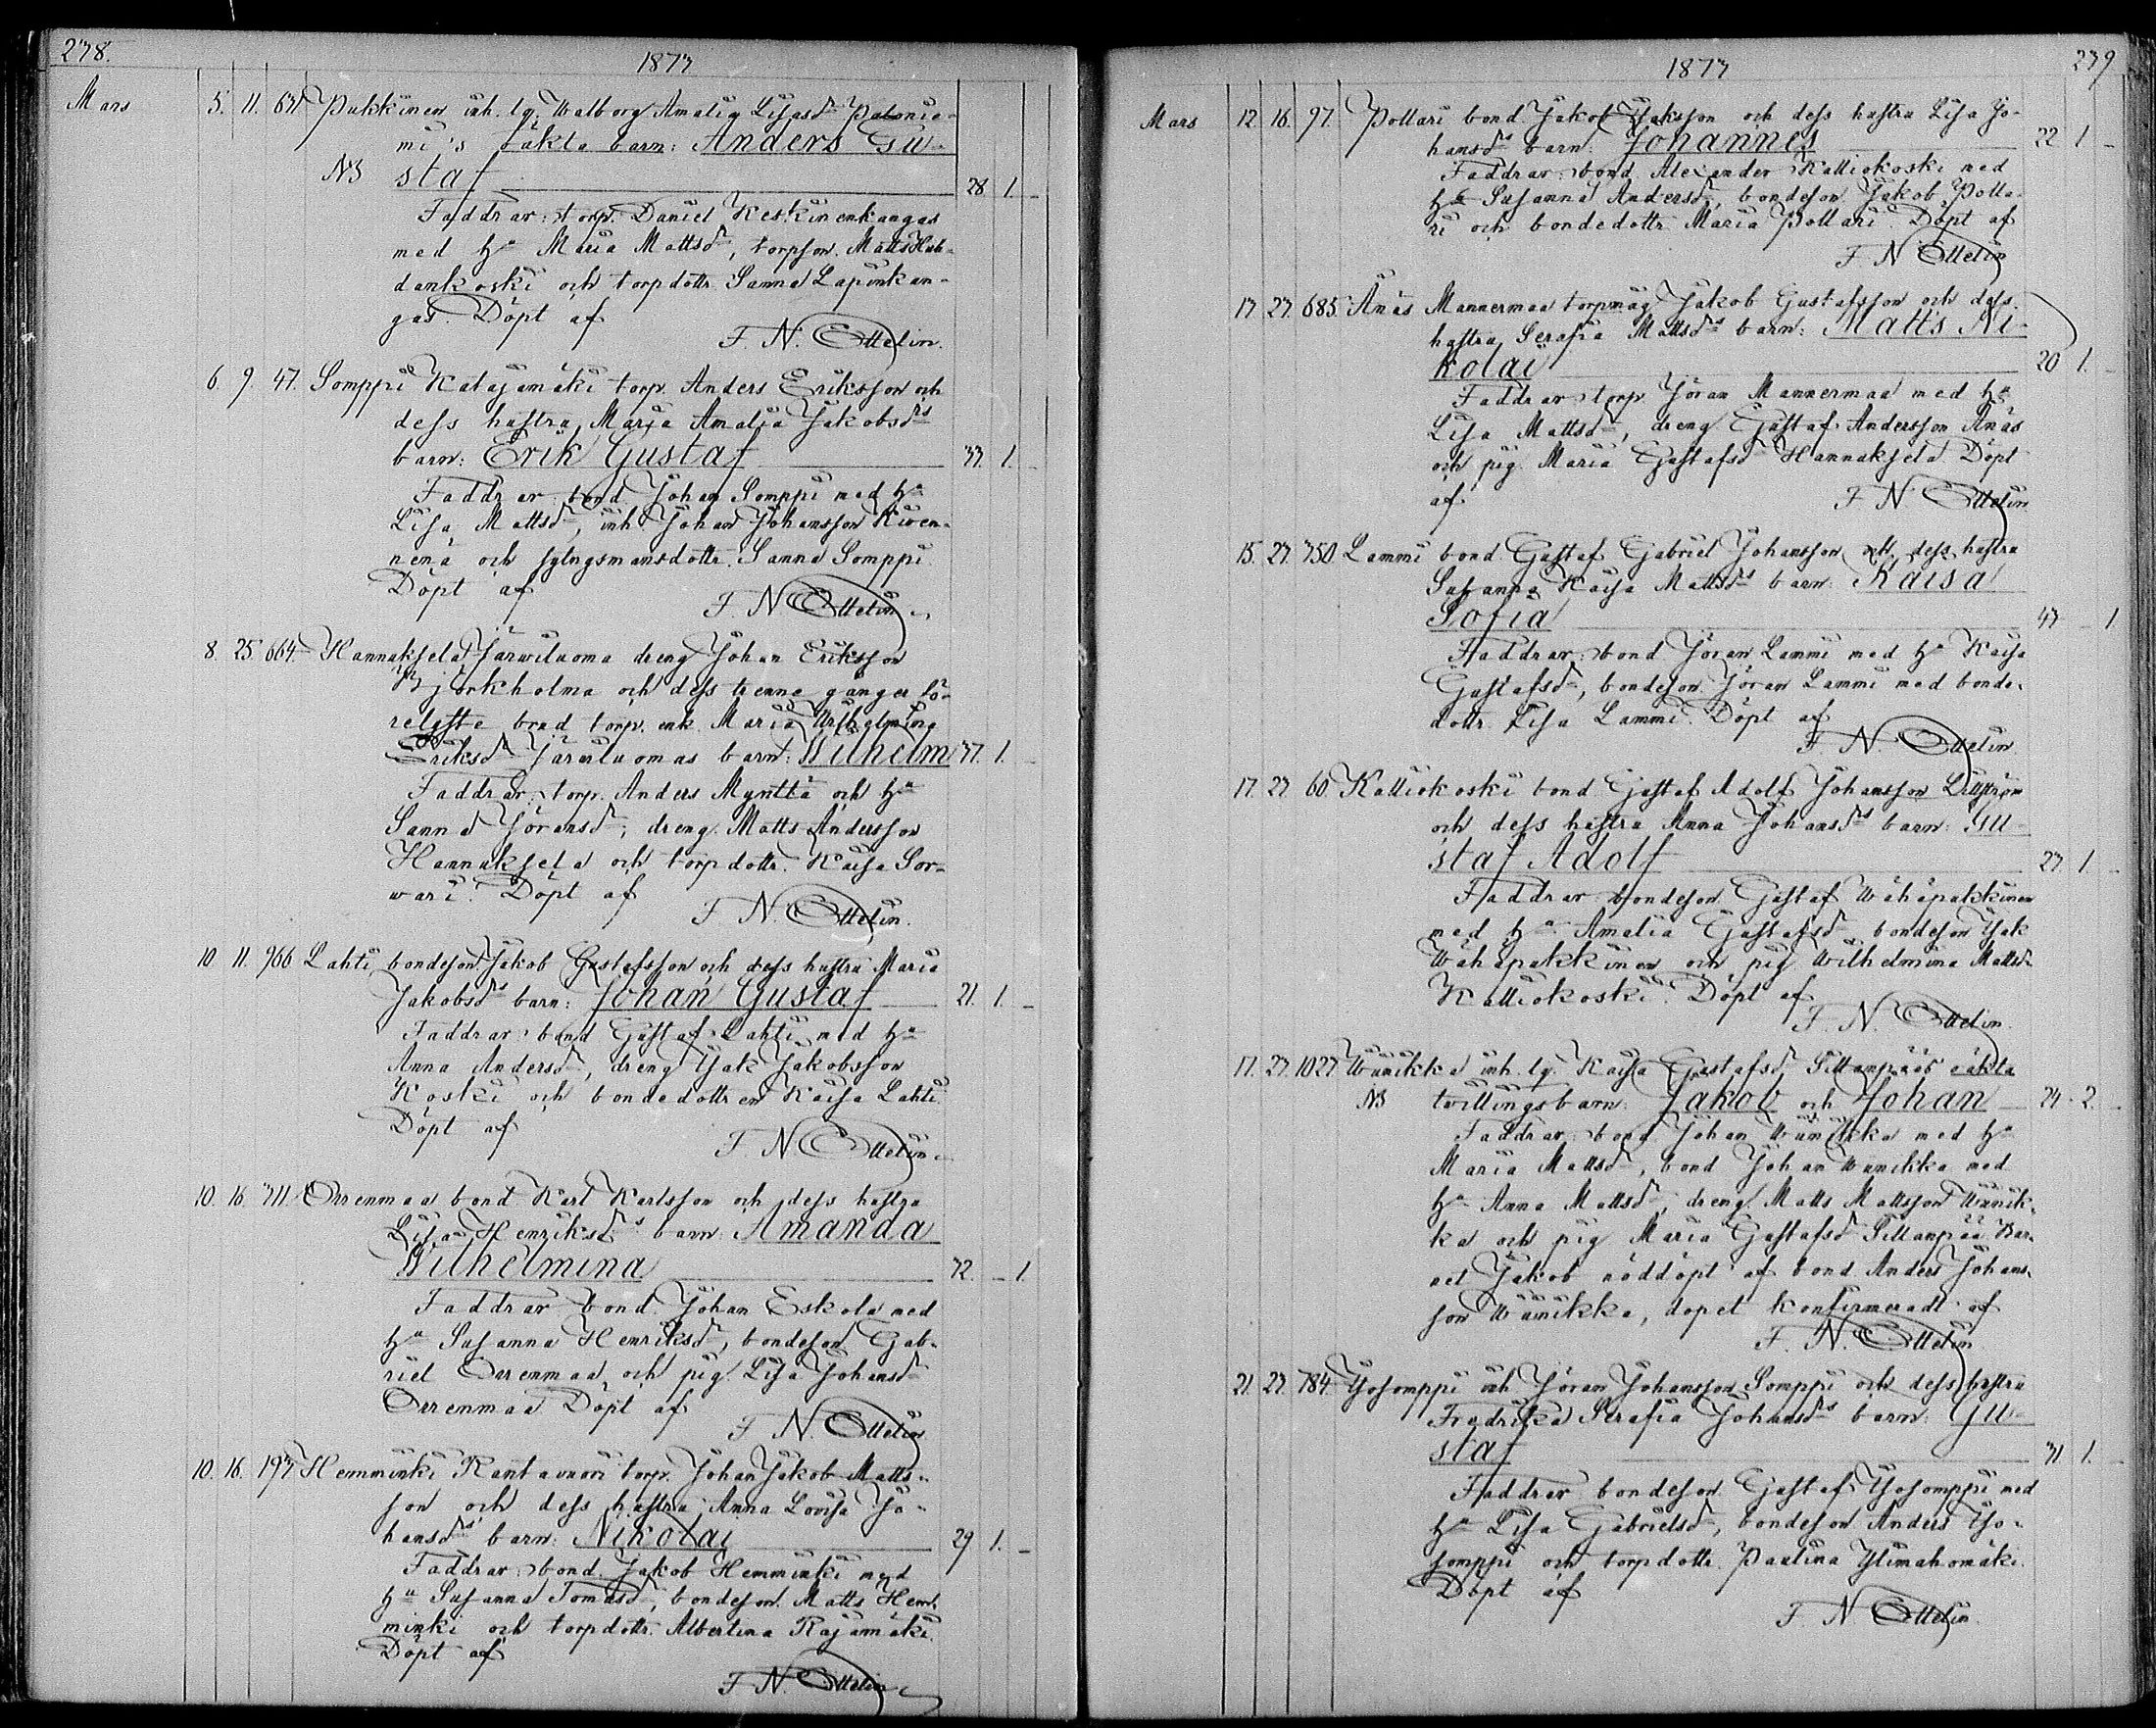 238.
1873
Mars 5. 11. 631 Pukkinen inh. lg. Walborg Amalia Lisasdr Palonie-
mi's oäkta barn: Anders Gu-
NB staf 28 1. -
Faddrar: torp. Daniel Keskinenkangas
med hu Maria Mattsdr, torpson Matts
dankoski och torpdottr. Sanna Lapinkan-
gas. Döpt af
F. N. Ottelin.
6. 9. 47. Somppi Katajamäki torp. Anders Eriksson och
dess hustru Maria Amalia Jakobsdrs
barn: Erik Gustaf 33. 1. -
Faddrar: bond. Johan Somppi med hu
Lisa Mattsdr, inh. Johan Johansson Kiven-
nenä och sytngsmansdottr. Sanna Somppi
Döpt af
F. N. Ottelin.
8. 25. 664. Hannuksela Järwiluoma dreng Johan Eriksson
Björkholma och dess trenne gånger lö-
relyste brud torp. enk. Maria Wilhelmina
Eriksdr Järviluomas barn: Wilhelm 37. 1. -
Faddrar: torp. Anders Mynttä och hu
Sanna Jöransdr, dreng Matts Andersson
Hannuksela och torpdottr. Kaisa Sor-
wari. Döpt af
F. N. Ottelin.
10. 11. 966 Lahti bondeson Jakob Gustafsson och dess hustru Maria
Jakobsdrs barn: Johan Gustaf 21. 1. -
Faddrar: bond Gustaf Lahti med hu
Anna Andersdr, dreng Jak. Jakobsson
Koski och bondedottren Kaisa Lahti.
Döpt af
F. N. Ottelin.
10. 16. 311. Orrenmaa bond Karl Karlsson och dess hustru
Lisa Henriksdrs barn: Amanda
Wilhelmina 32. - 1.
Faddrar bond. Johan Eskola med
hu Susanna Henriksdr, bondeson Gab-
riel Orrenmaa och pig. Lisa Johansdr
Orrenmaa Döpt af
F. N. Ottelin
10. 16. 193 Hemminki Rantavuori torp. Johan Jakob Matts-
son och dess hustru Anna Lovisa Jo-
hansdrs barn: Nikolai 29 1. -
Faddrar: bond. Jakob Hemminki med
hu Susanna Tomasdr, bondeson Matts Hem-
minki och torpdottr. Albertina Rajamäki.
Döpt af
F. N. Ottelin
1873
239
Mars 12. 16. 97. Pollari bond. Jakob Jaksson och dess hustru Lisa Jo-
hansdrs barn: Johannes 22 1 -
Faddrar: bond. Alexander Kalliokoski med
hu Susanna Andersdr, bondeson Jakob Polla-
ri och bondedottr Maria Pollari. Döpt af
F. N. Ottelin
13. 23. 685. Änäs Mannermaa torpmåg Jakob Gustafsson och dess
hustru Serafia Mattsdrs barn: Matts Ni-
kolai 20 1. -
Faddrar torp. Jöran Mannermaa med hu
Lisa Mattsdr, dreng Gustaf Andersson Änäs
och pig. Maria Gustafsdr Hannuksela Döpt
af F. N. Ottelin
15. 23. 350. Lammi bond. Gustaf Gabriel Johansson och dess hustru
Susanna Kaisa Mattsdrs barn: Kaisa
Sofia 43 - 1
Faddrar: bond. Jöran Lammi med hu Kaisa
Gustafsdr, bondeson Jöran Lammi med bonde-
dottr. Lisa Lammi. Döpt af
F. N. Ottelin
17. 23. 60. Kalliokoski bond. Gustaf Adolf Johansson
och dess hustru Anna Johansdrs barn: Gu-
staf Adolf 23. 1. -
Faddrar bondeson Gustaf Wähäpukkinen
med hu Amalia Gustafsdr, bondeson Jak
Wähäpukkinen och pig. Wilhelmina Mattsdr
Kalliokoski. Döpt af
F. N. Ottelin.
17. 23. 1027. Wainikka inh. lg. Kaisa Gustafsdr Sillanpääs oäkta
NB twillingsbarn: Jakob och Johan 24 - 2. -
Faddrar: bond. Johan Wainikka med hu
Maria Mattsdr, bond Johan Wainikka med
hu Anna Mattsdr, dreng Matts Mattsson Wainik-
ka och pig. Maria Gustafsdr Sillanpää. Bar-
net Jakob nöddöpt af bond Anders Johans-
son Wainikka, dopet konfirmeradt af
F. N. Ottelin
21. 23. 784. Yösomppi inh. Jöran Johansson Somppi och dess hustru
Fredrika Serafia Johansdrs barn: Gu-
staf 31 1. -
Faddrar bondeson Gustaf Yösomppi med
hu Lisa Gabrielsdr, bondeson Anders Yö-
somppi och torpdottr. Paulina Ylimahomäki.
Döpt af
F. N. Ottelin.